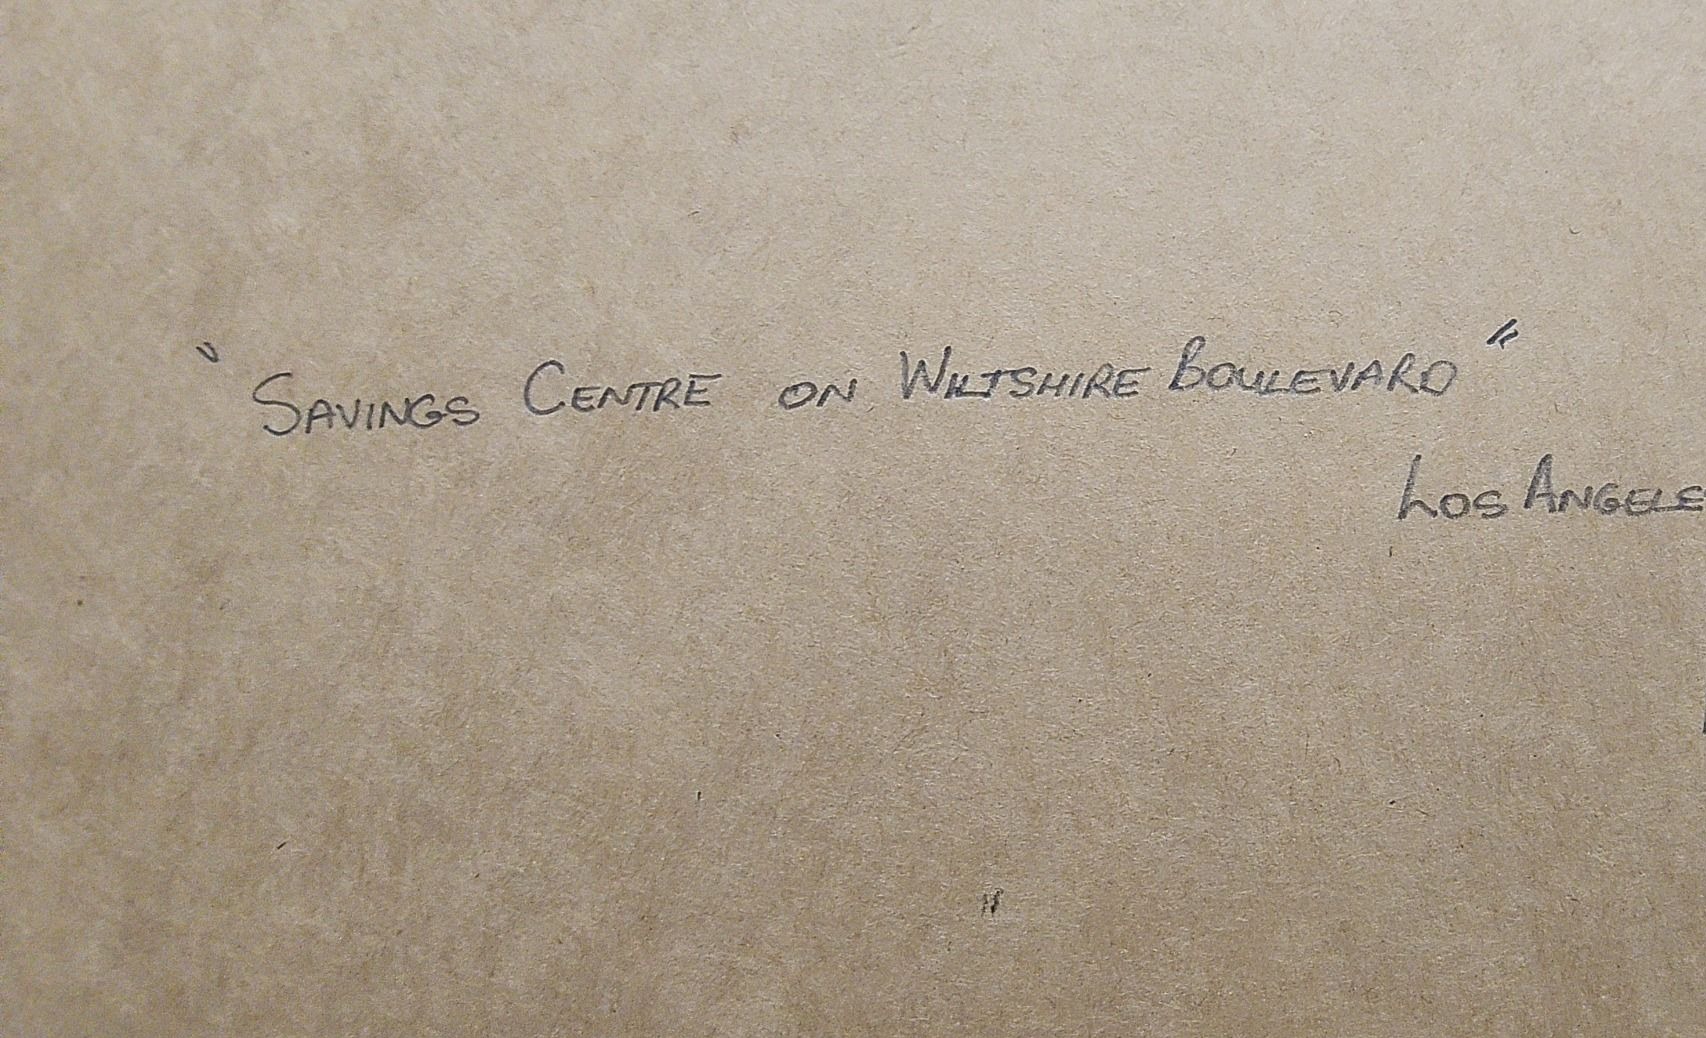 "Savings Centre on Wiltshire Boulevard"
Los Angeles